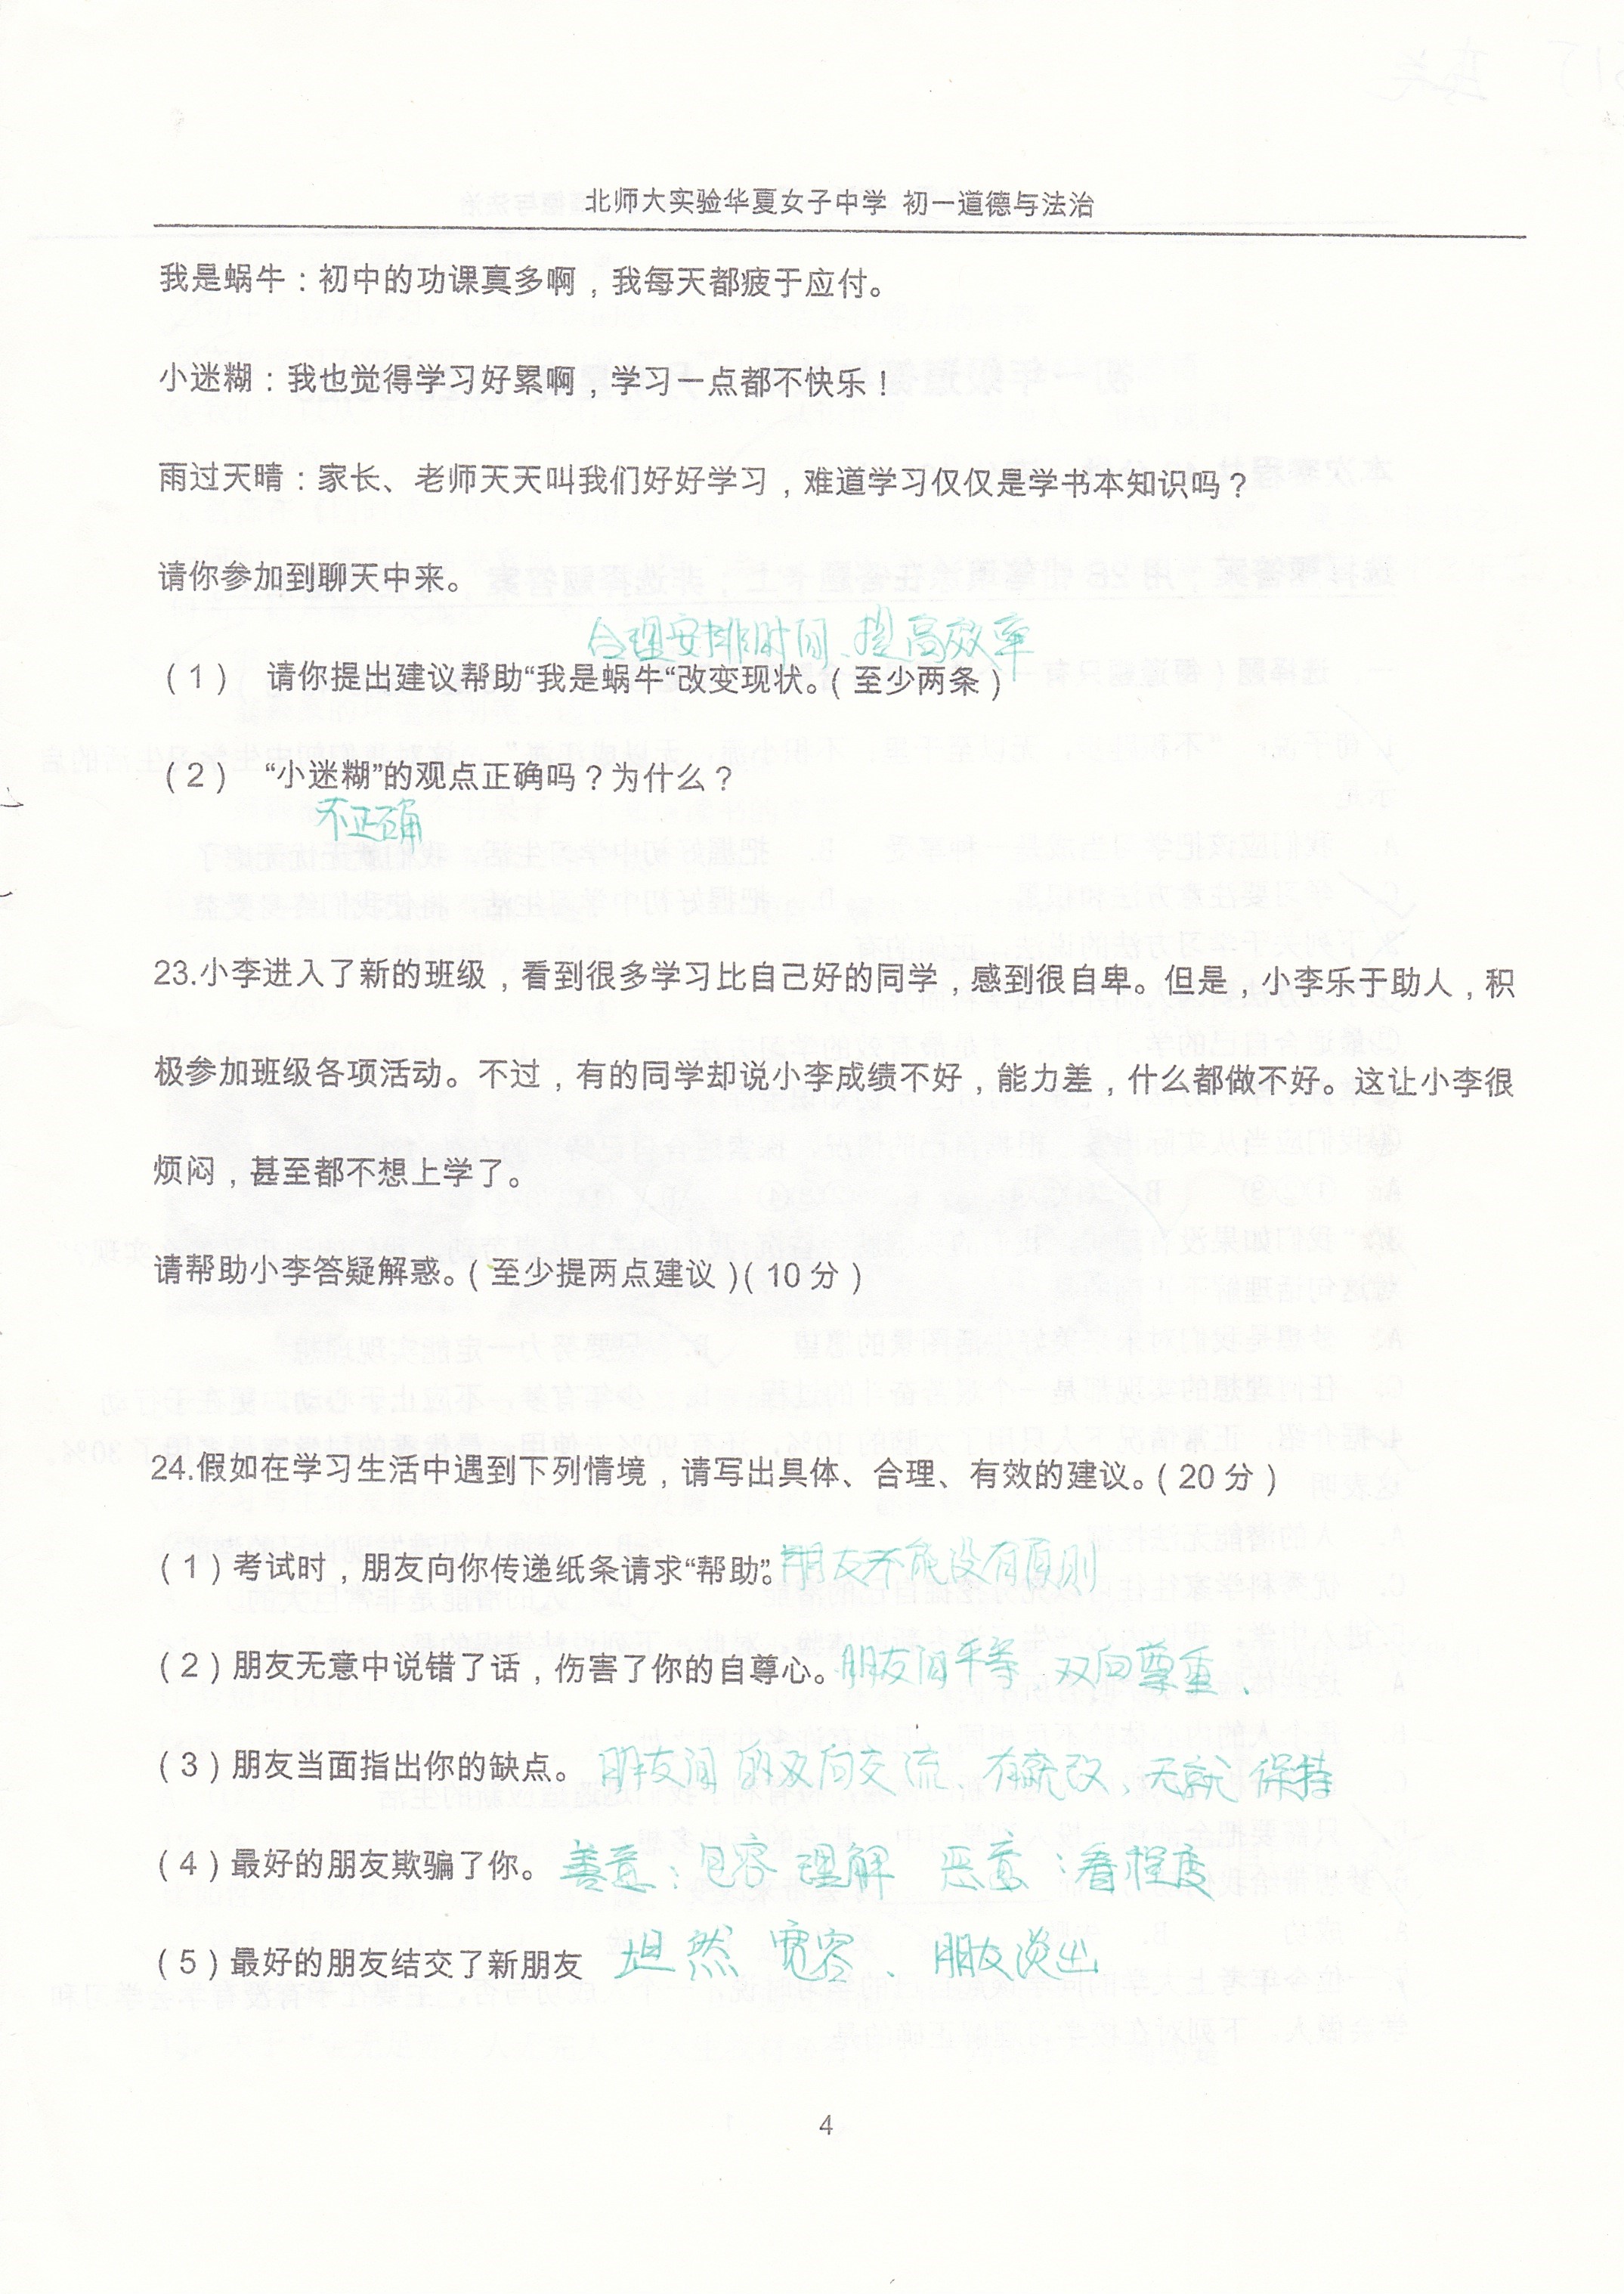 北师大实验华夏女子中学 初一道德与法治
我是蜗牛：初中的功课真多啊，我每天都疲于应付。
小迷糊：我也觉得学习好累啊，学习一点都不快乐！
雨过天晴：家长、老师天天叫我们好好学习，难道学习仅仅是学书本知识吗？
请你参加到聊天中来。
合理安排时间、提高效率
（1） 请你提出建议帮助“我是蜗牛“改变现状。（至少两条）
（2） “小迷糊”的观点正确吗？为什么？
不正确
23.小李进入了新的班级，看到很多学习比自己好的同学，感到很自卑。但是，小李乐于助人，积
极参加班级各项活动。不过，有的同学却说小李成绩不好，能力差，什么都做不好。这让小李很
烦闷，甚至都不想上学了。
请帮助小李答疑解惑。（至少提两点建议）（10 分）
24.假如在学习生活中遇到下列情境，请写出具体、合理、有效的建议。（20 分）
（1）考试时，朋友向你传递纸条请求“帮助”。朋友不能没有原则
（2）朋友无意中说错了话，伤害了你的自尊心。朋友间平等 双向尊重、
（3）朋友当面指出你的缺点。 朋友间的双向交流、有就改、无就保持
（4）最好的朋友欺骗了你。 善意：包容 理解 恶意：看程度
（5）最好的朋友结交了新朋友 坦然 宽容、朋友淡出
4